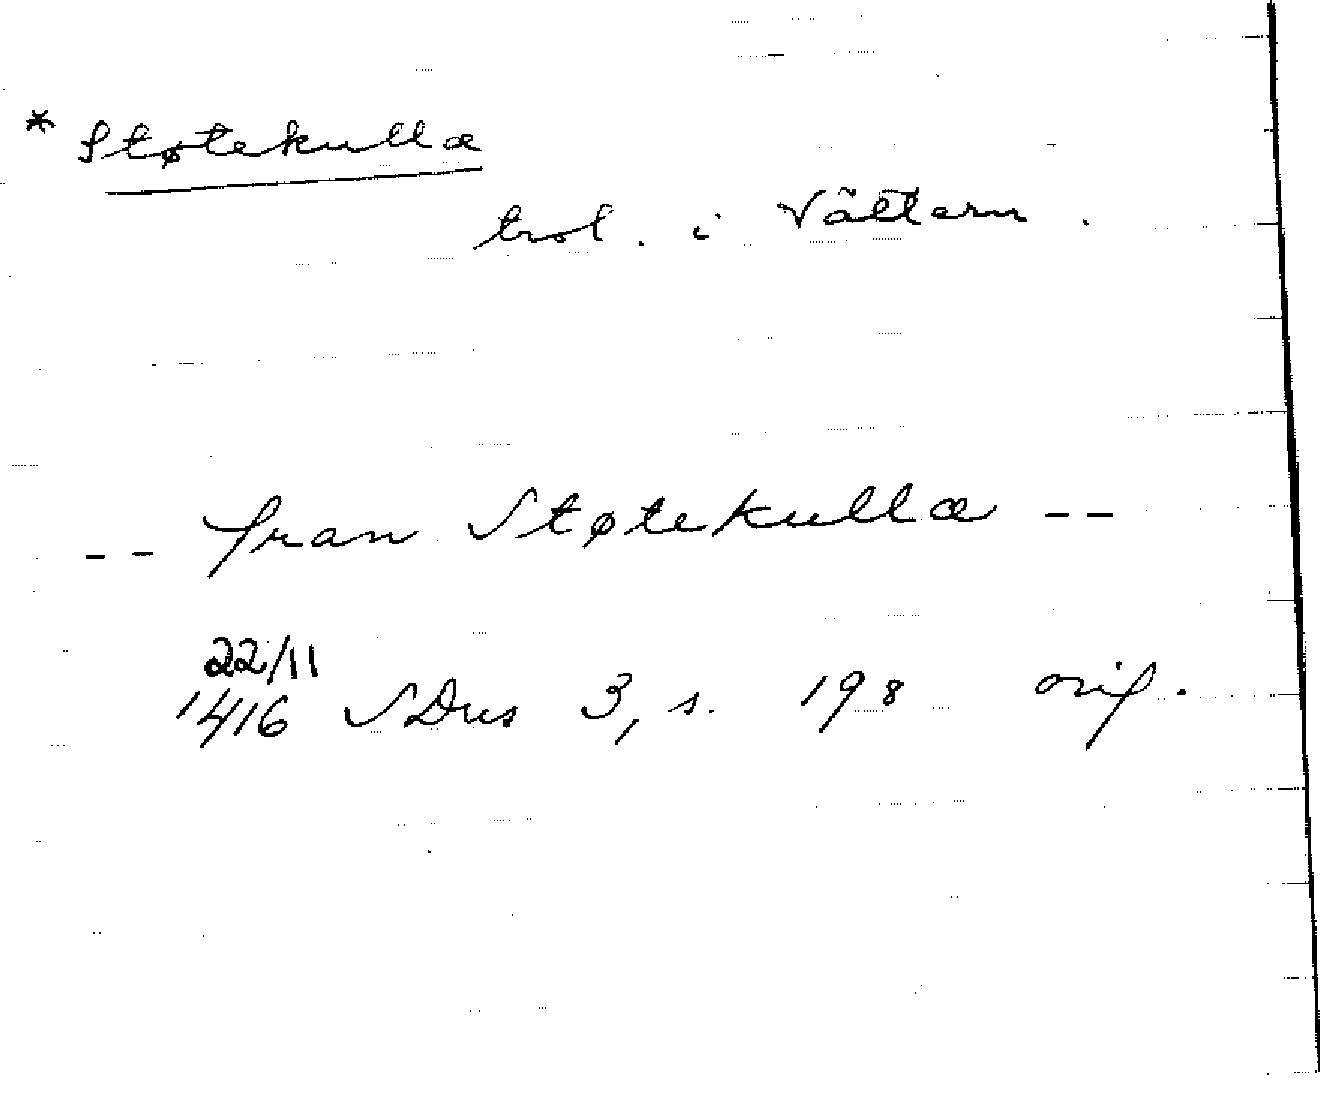 * Støtekullæ
trol. i Vättern.
-- fran Støtekullæ --
22/11
1416 SDns 3, s. 198 orig.